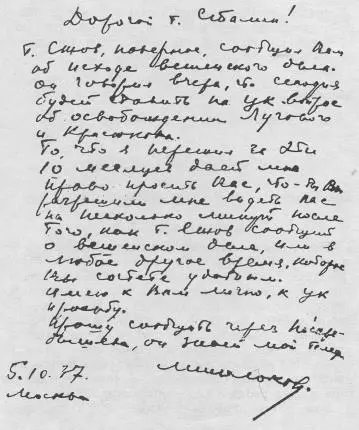 Дорогой т. Сталин!
Т. Ежов, наверное, сообщил Вам
об исходе вешенского дела.
Он говорил вчера, что сегодня
будет ставить на ЦК вопрос
об освобождении Лугового
и Красюкова.
То, что я пережил за эти
10 месяцев дает мне
право просить Вас, что-бы Вы
разрешили мне видеть Вас
на несколько минут после
того, как т. Ежов сообщит
о вешенском деле, или в
любое другое время, которое
Вы сочтете удобным.
Имею к Вам лично, к ЦК
просьбу.
Прошу сообщить через Поскре-
бышева, он знает мой тел.
5.10.37.
Москва